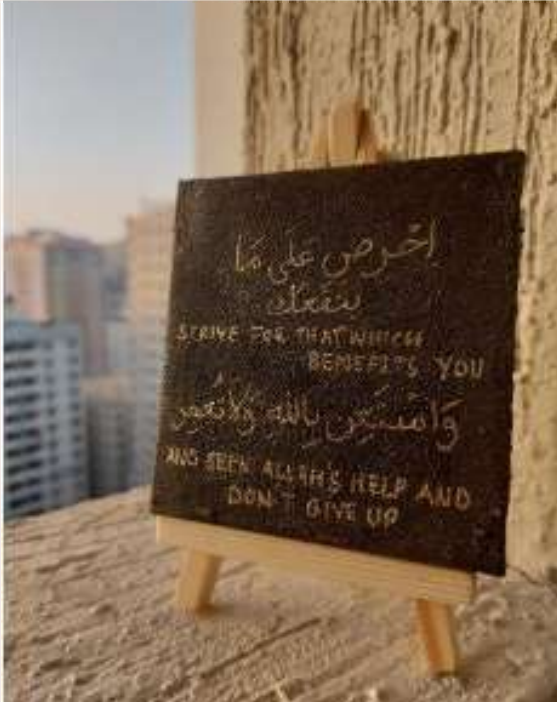 احْرِص عَلَى مَا
ينفعك
STRIVE FOR THAT WHICH
BENEFITS YOU
وَاسْتَعِن بِاللهِ وَلَا تَعْجِز
AND SEEK ALLAH'S HELP AND
DON'T GIVE UP